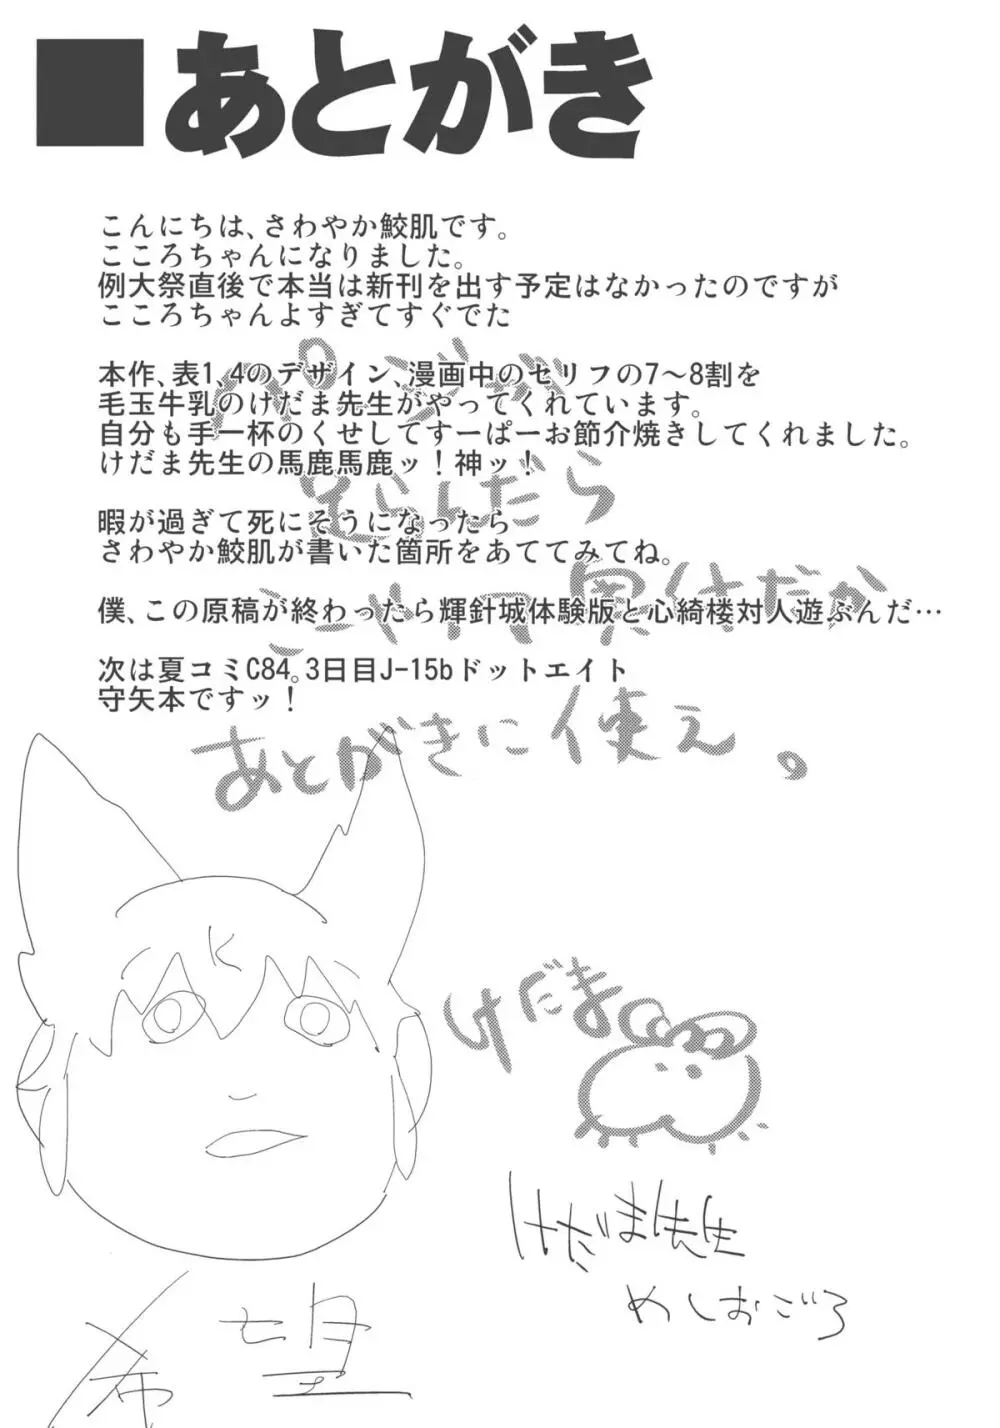 ■あとがき
こんにちは、さわやか鮫肌です。
こころちゃんになりました。
例大祭直後で本当は新刊を出す予定はなかったのですが
こころちゃんよすぎてすぐでた
本作、表1、4のデザイン、漫画中のセリフの7〜8割を
毛玉牛乳のけだま先生がやってくれています。
自分も手一杯のくせしてすーぱーお節介焼きしてくれました。
けだま先生の馬鹿馬鹿ッ！神ッ！
暇が過ぎて死にそうになったら
さわやか鮫肌が書いた箇所をあててみてね。
僕、この原稿が終わったら輝針城体験版と心綺楼対人遊ぶんだ…
次は夏コミC84。3日目J-15bドットエイト
守矢本ですッ！
ページが
足らんだら
こーやす実体だか
あとがきに使え。
けだま
けだま先生
めしおごろ
希望